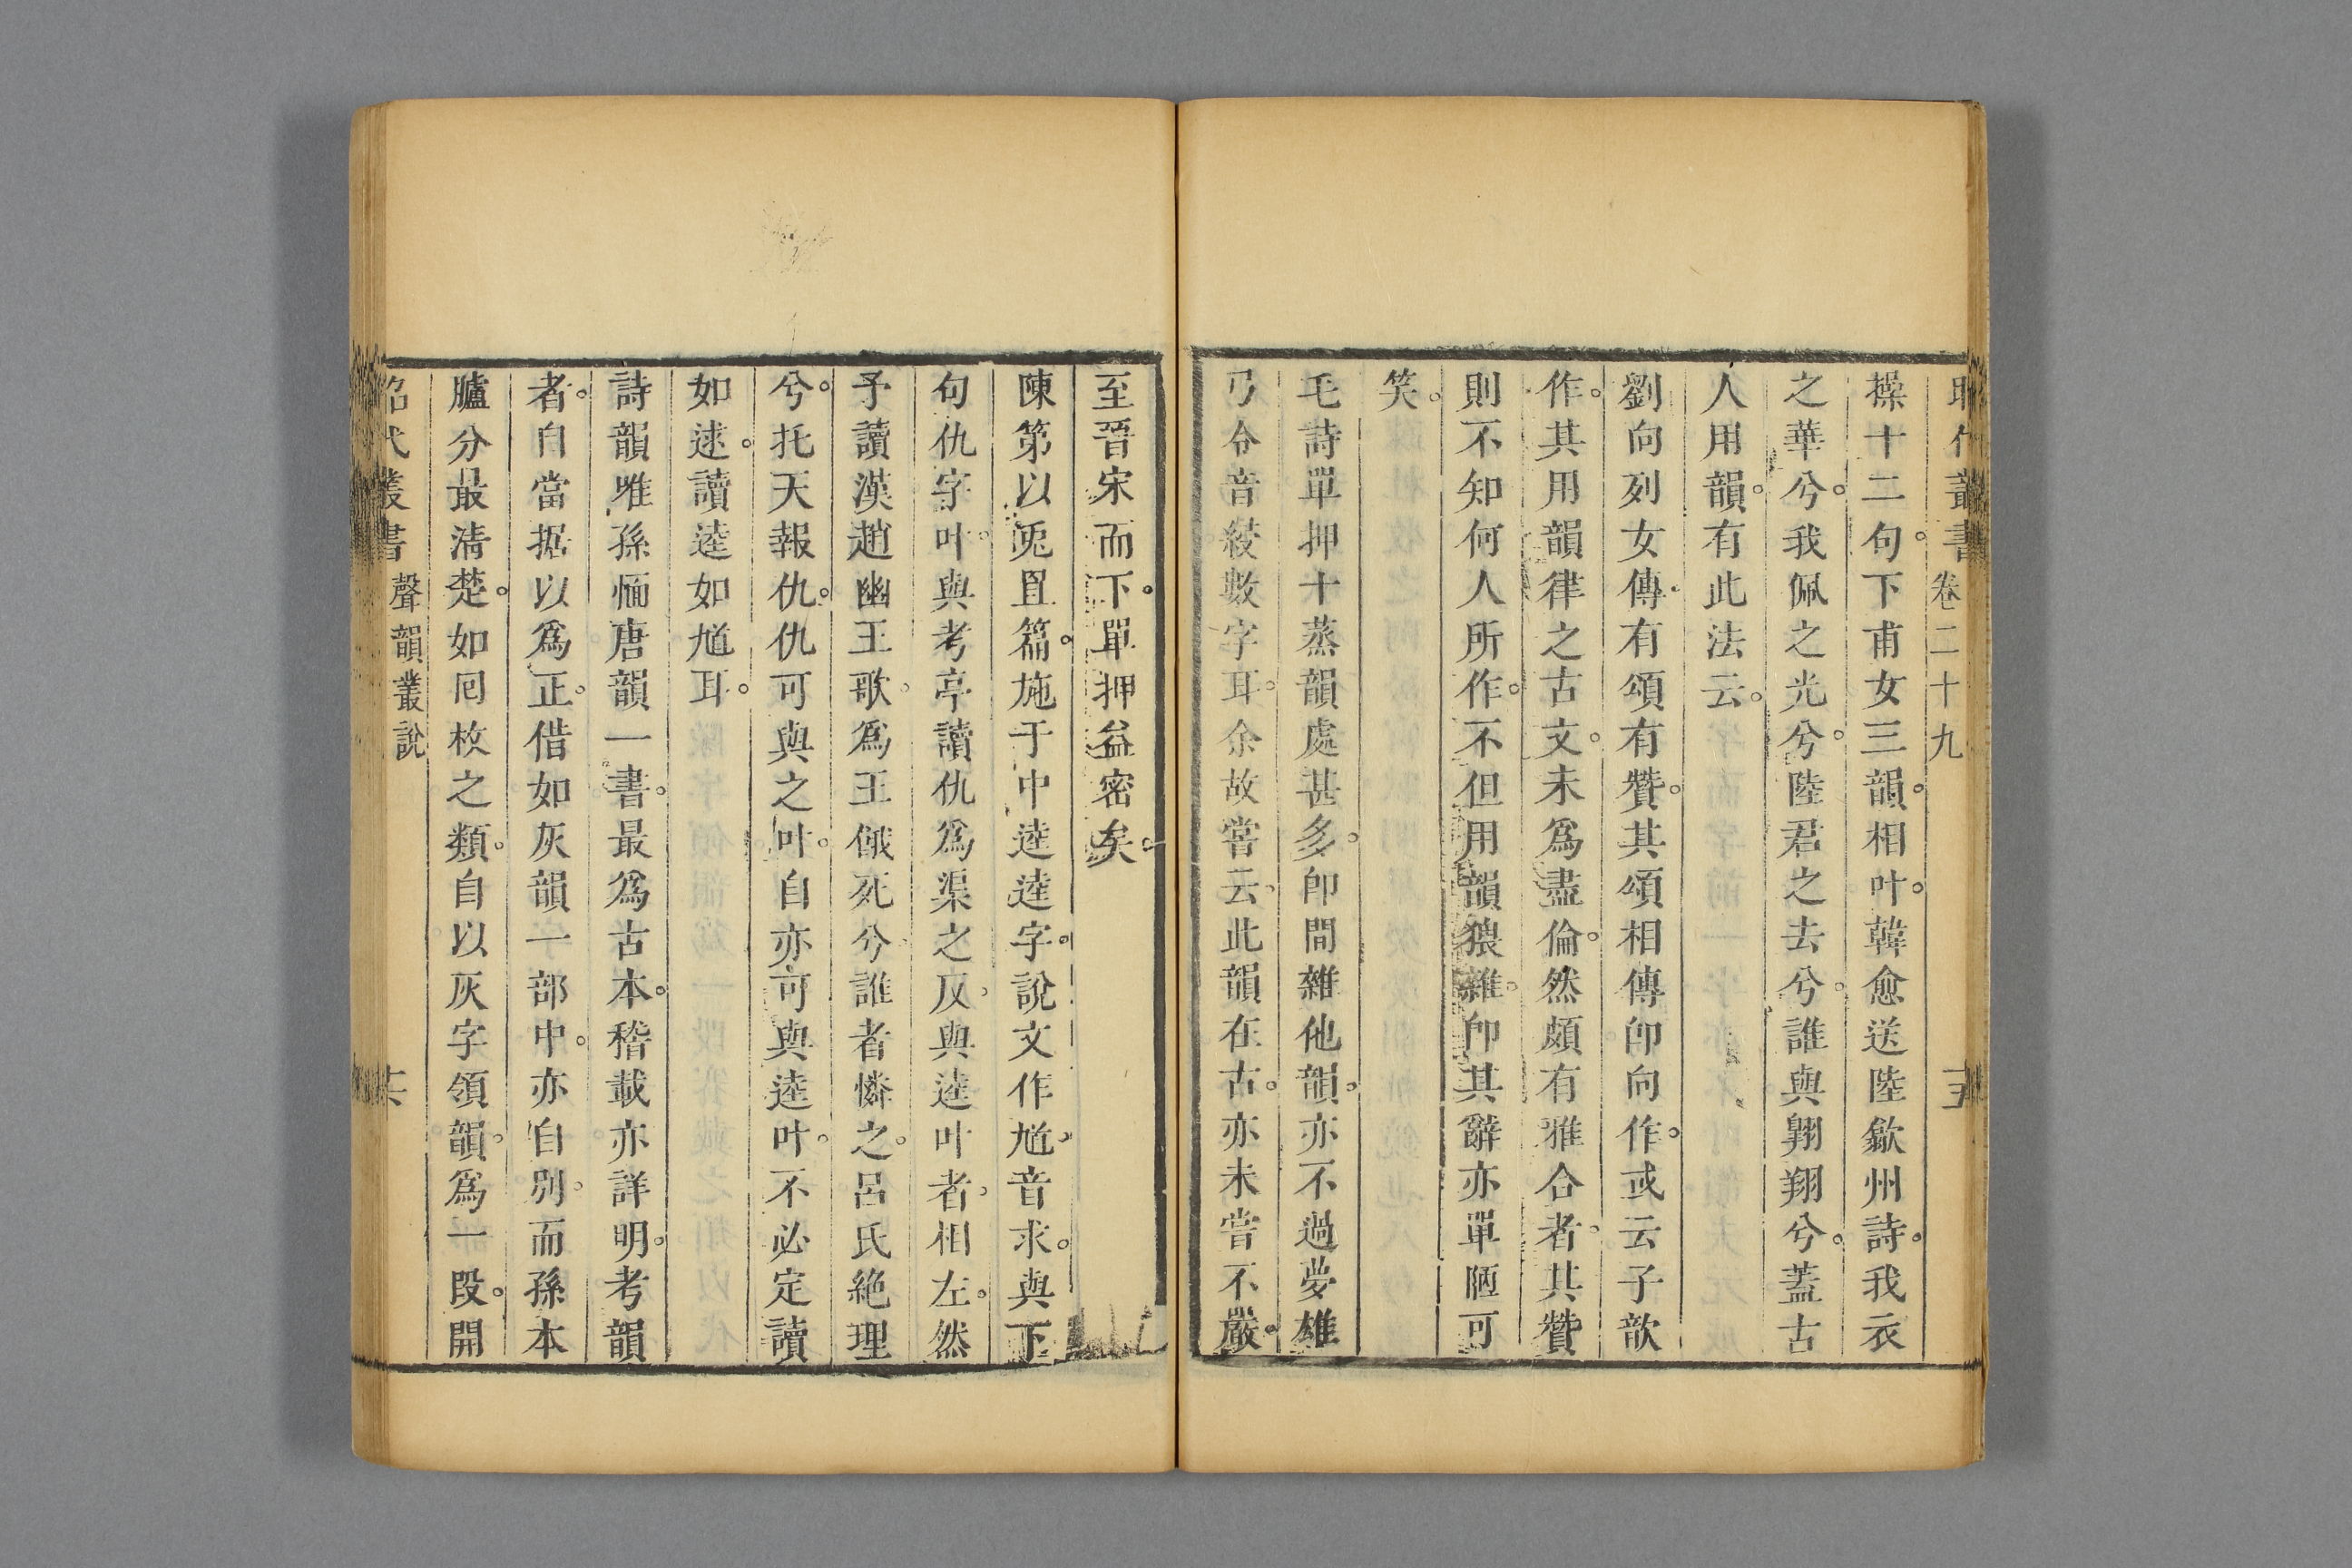 昭代叢書 卷二十九
操十二句。下甫女三韻。相叶。韓愈送陸歙州詩。我衣
之華兮。我佩之光兮。陸君之去兮。誰與翺翔兮。蓋古
人用韻。有此法云。
劉向列女傳。有頌有贊。其頌相傳卽向作。或云子歆
作。其用韻律之古文。未爲盡倫。然頗有雅合者。其贊
則不知何人所作。不但用韻猥雜。卽其辭亦單陋可
笑。
毛詩單押十蒸韻處甚多。卽間雜他韻。亦不過夢雄
弓令音綅數字耳。余故嘗云。此韻在古。亦未嘗不嚴。
至晉宋而下。單押益密矣。
陳第以兎罝篇。施于中逵。逵字。說文作馗。音求。與下
句仇字叶。與考亭讀仇爲渠之反。與逵叶者。相左。然
予讀漢趙幽王歌。爲王餓死兮。誰者憐之。呂氏絶理
兮。托天報仇。仇可與之叶。自亦可與逵叶。不必定讀
如逑。讀逵如馗耳。
詩韻唯孫愐唐韻一書。最爲古本。稽載亦詳明。考韻
者。自當据以爲正。借如灰韻一部中。亦自別。而孫本
臚分最淸楚。如囘枚之類。自以灰字領韻。爲一段。開
昭代叢書 聲韻叢說 十六